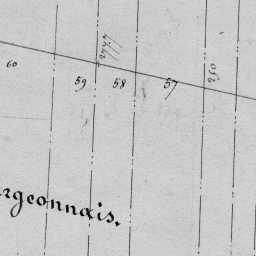 60
59
58
57
250
rgeonnais.